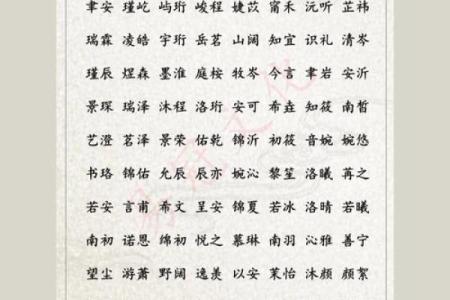 聿安 瑾屹 屿珩 峻程 婕苡 甯禾 沅听 芷祎
瑞霖 凌皓 宇珩 岳茗 山阔 知宜 识礼 清岑
瑾辰 煜森 墨淮 庭桉 牧岑 今言 聿岩 安沂
景琛 瑞泽 沐程 洛珩 安可 希垚 知筱 南皙
艺澄 茗泽 景荣 佑乾 锦沂 初筱 音婉 婉悠
书珞 锦佑 允辰 辰亦 婉沁 黎笙 洛曦 苒之
若安 言甫 希文 呈安 锦夏 若冰 洛晴 若曦
南初 诺恩 绵初 悦之 慕琳 南羽 沁雅 善宁
望尘 游萧 野阔 逸羡 以安 茉怡 沐颜 颜絮